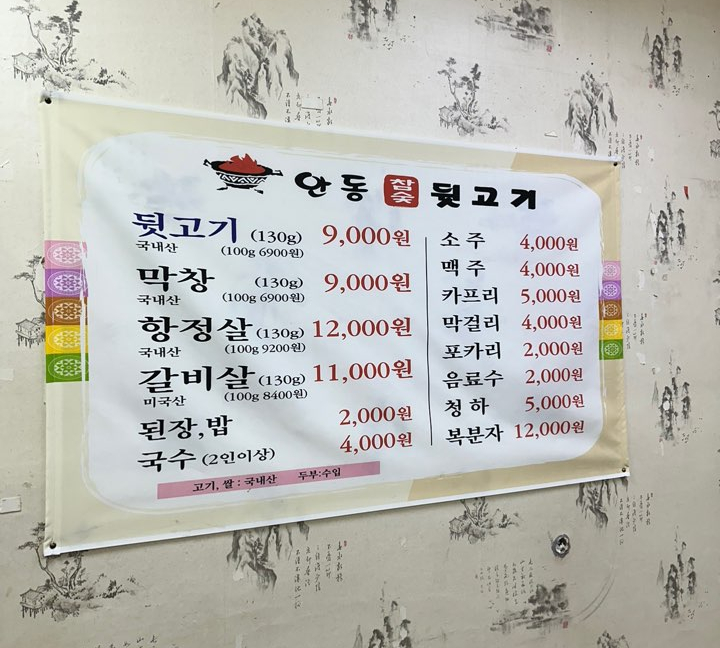 안동 참숯 뒷고기
뒷고기 (130g) 9,000원
국내산 (100g 6900원)
막창 (130g) 9,000원
국내산 (100g 6900원)
항정살 (130g) 12,000원
국내산 (100g 9200원)
갈비살 (130g) 11,000원
미국산 (100g 8400원)
된장,밥 2,000원
국수 (2인이상) 4,000원
고기, 쌀 : 국내산 두부:수입
소주 4,000원
맥주 4,000원
카프리 5,000원
막걸리 4,000원
포카리 2,000원
음료수 2,000원
청하 5,000원
복분자 12,000원